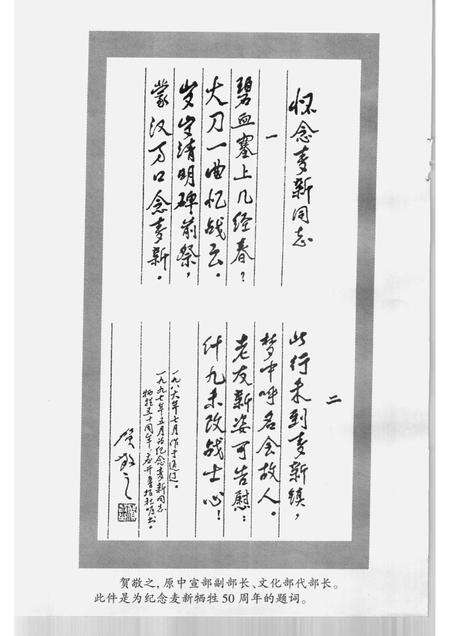 怀念麦新同志
一
碧血塞上几经春？
大刀一曲忆战云。
岁岁清明碑前祭，
蒙汉万口念麦新。
二
此行来到麦新镇，
梦中呼名会故人。
老友新姿可告慰：
什九未改战士心！
一九八六年七月作于通辽。
一九九七年五月为纪念麦新同志
牺牲五十周年应开鲁
贺敬之
贺敬之，原中宣部副部长、文化部代部长。
此件是为纪念麦新牺牲50周年的题词。